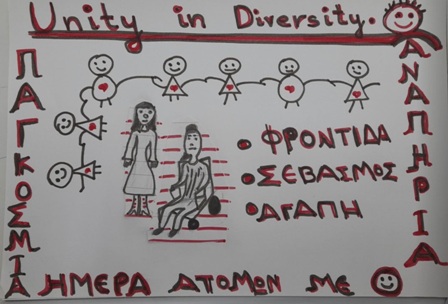 Unity in Diversity.
ΠΑΓΚΟΣΜΙΑ
ΗΜΕΡΑ ΑΤΟΜΟΝ ΜΕ
ΑΝΑΠΗΡΙΑ
• ΦΡΟΝΤΙΔΑ
• ΣΕΒΑΣΜΟΣ
• ΑΓΑΠΗ